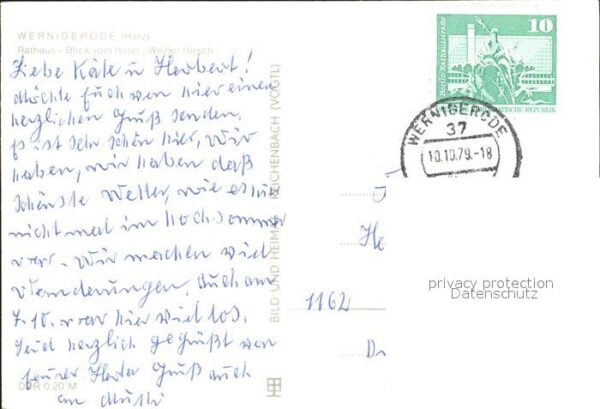 WERNIGERODE (Harz)
Rathaus - Blick vom Hotel „Weißer Hirsch"
Liebe Käte u Herbert!
Möchte Euch von hier einen
herzlichen Gruß senden,
es ist sehr schön hier, wir
haben, wir haben daß
schönste Wetter, wie es hier
nicht mal im hochsommer
war. Wir machen viel
Wanderungen. Auch am
7.10. war hier viel los.
Seid herzlich gegrüßt von
Eurer Gruß auch
an Mutti
DDR 0,20 M
BILD UND HEIMAT REICHENBACH (VOGTL)
10
Berlin, Rathausstraße
WERNIGERODE
37
10.10.79.-18
1162
privacy protection
Datenschutz